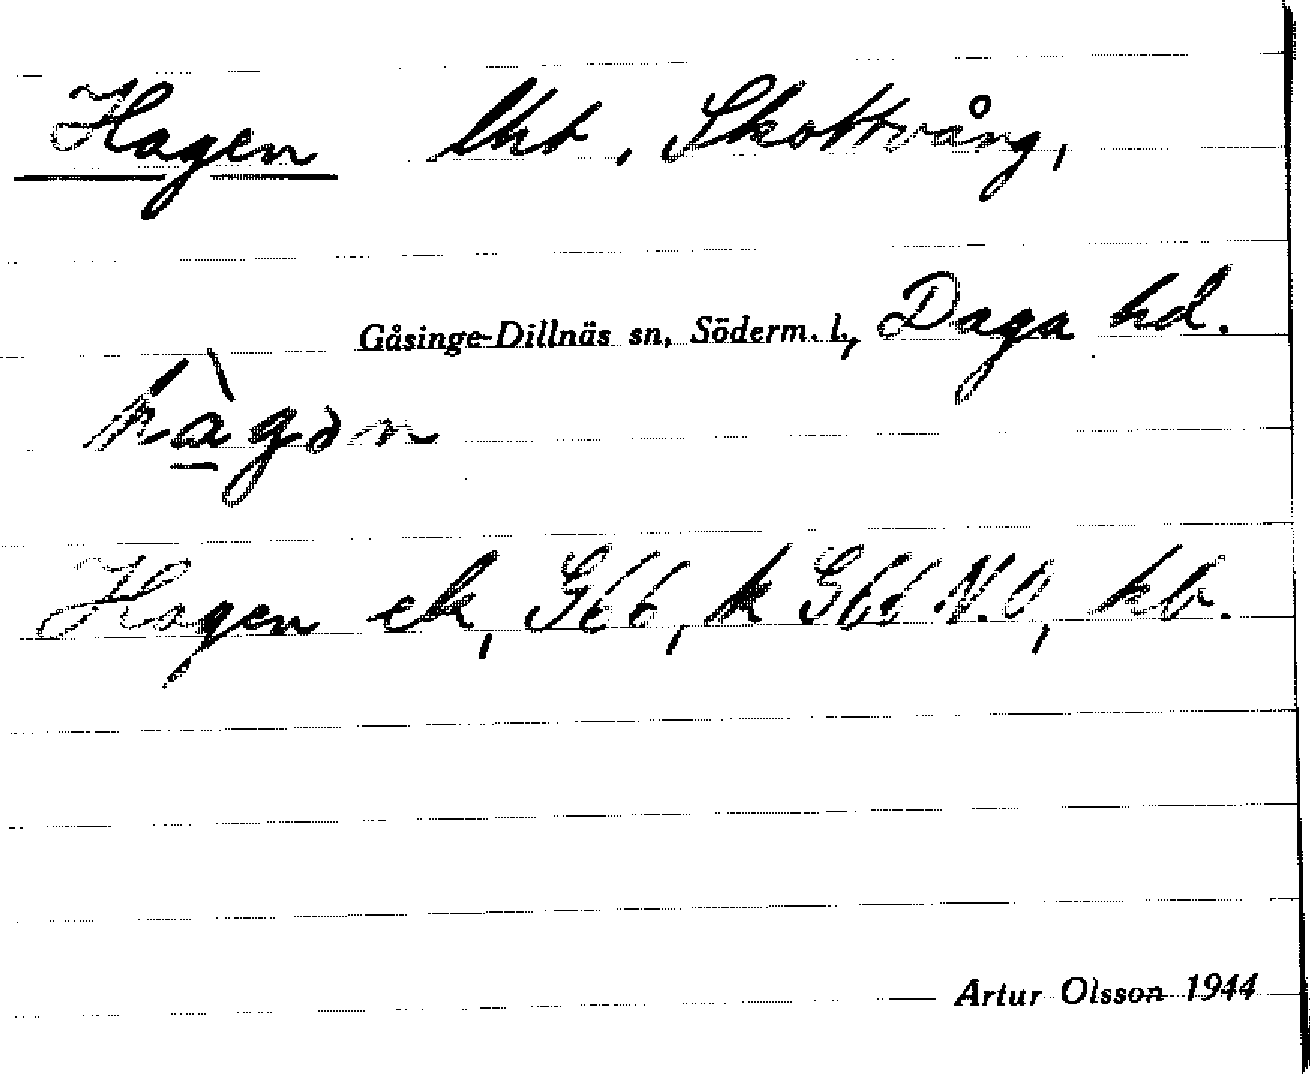 Hagen lht, Skottvång,
Gåsinge-Dillnäs sn, Söderm. l., Daga hd.
hàgən
Hagen ek, Gbb, k Gbb N.O, kb.
Artur Olsson 1944